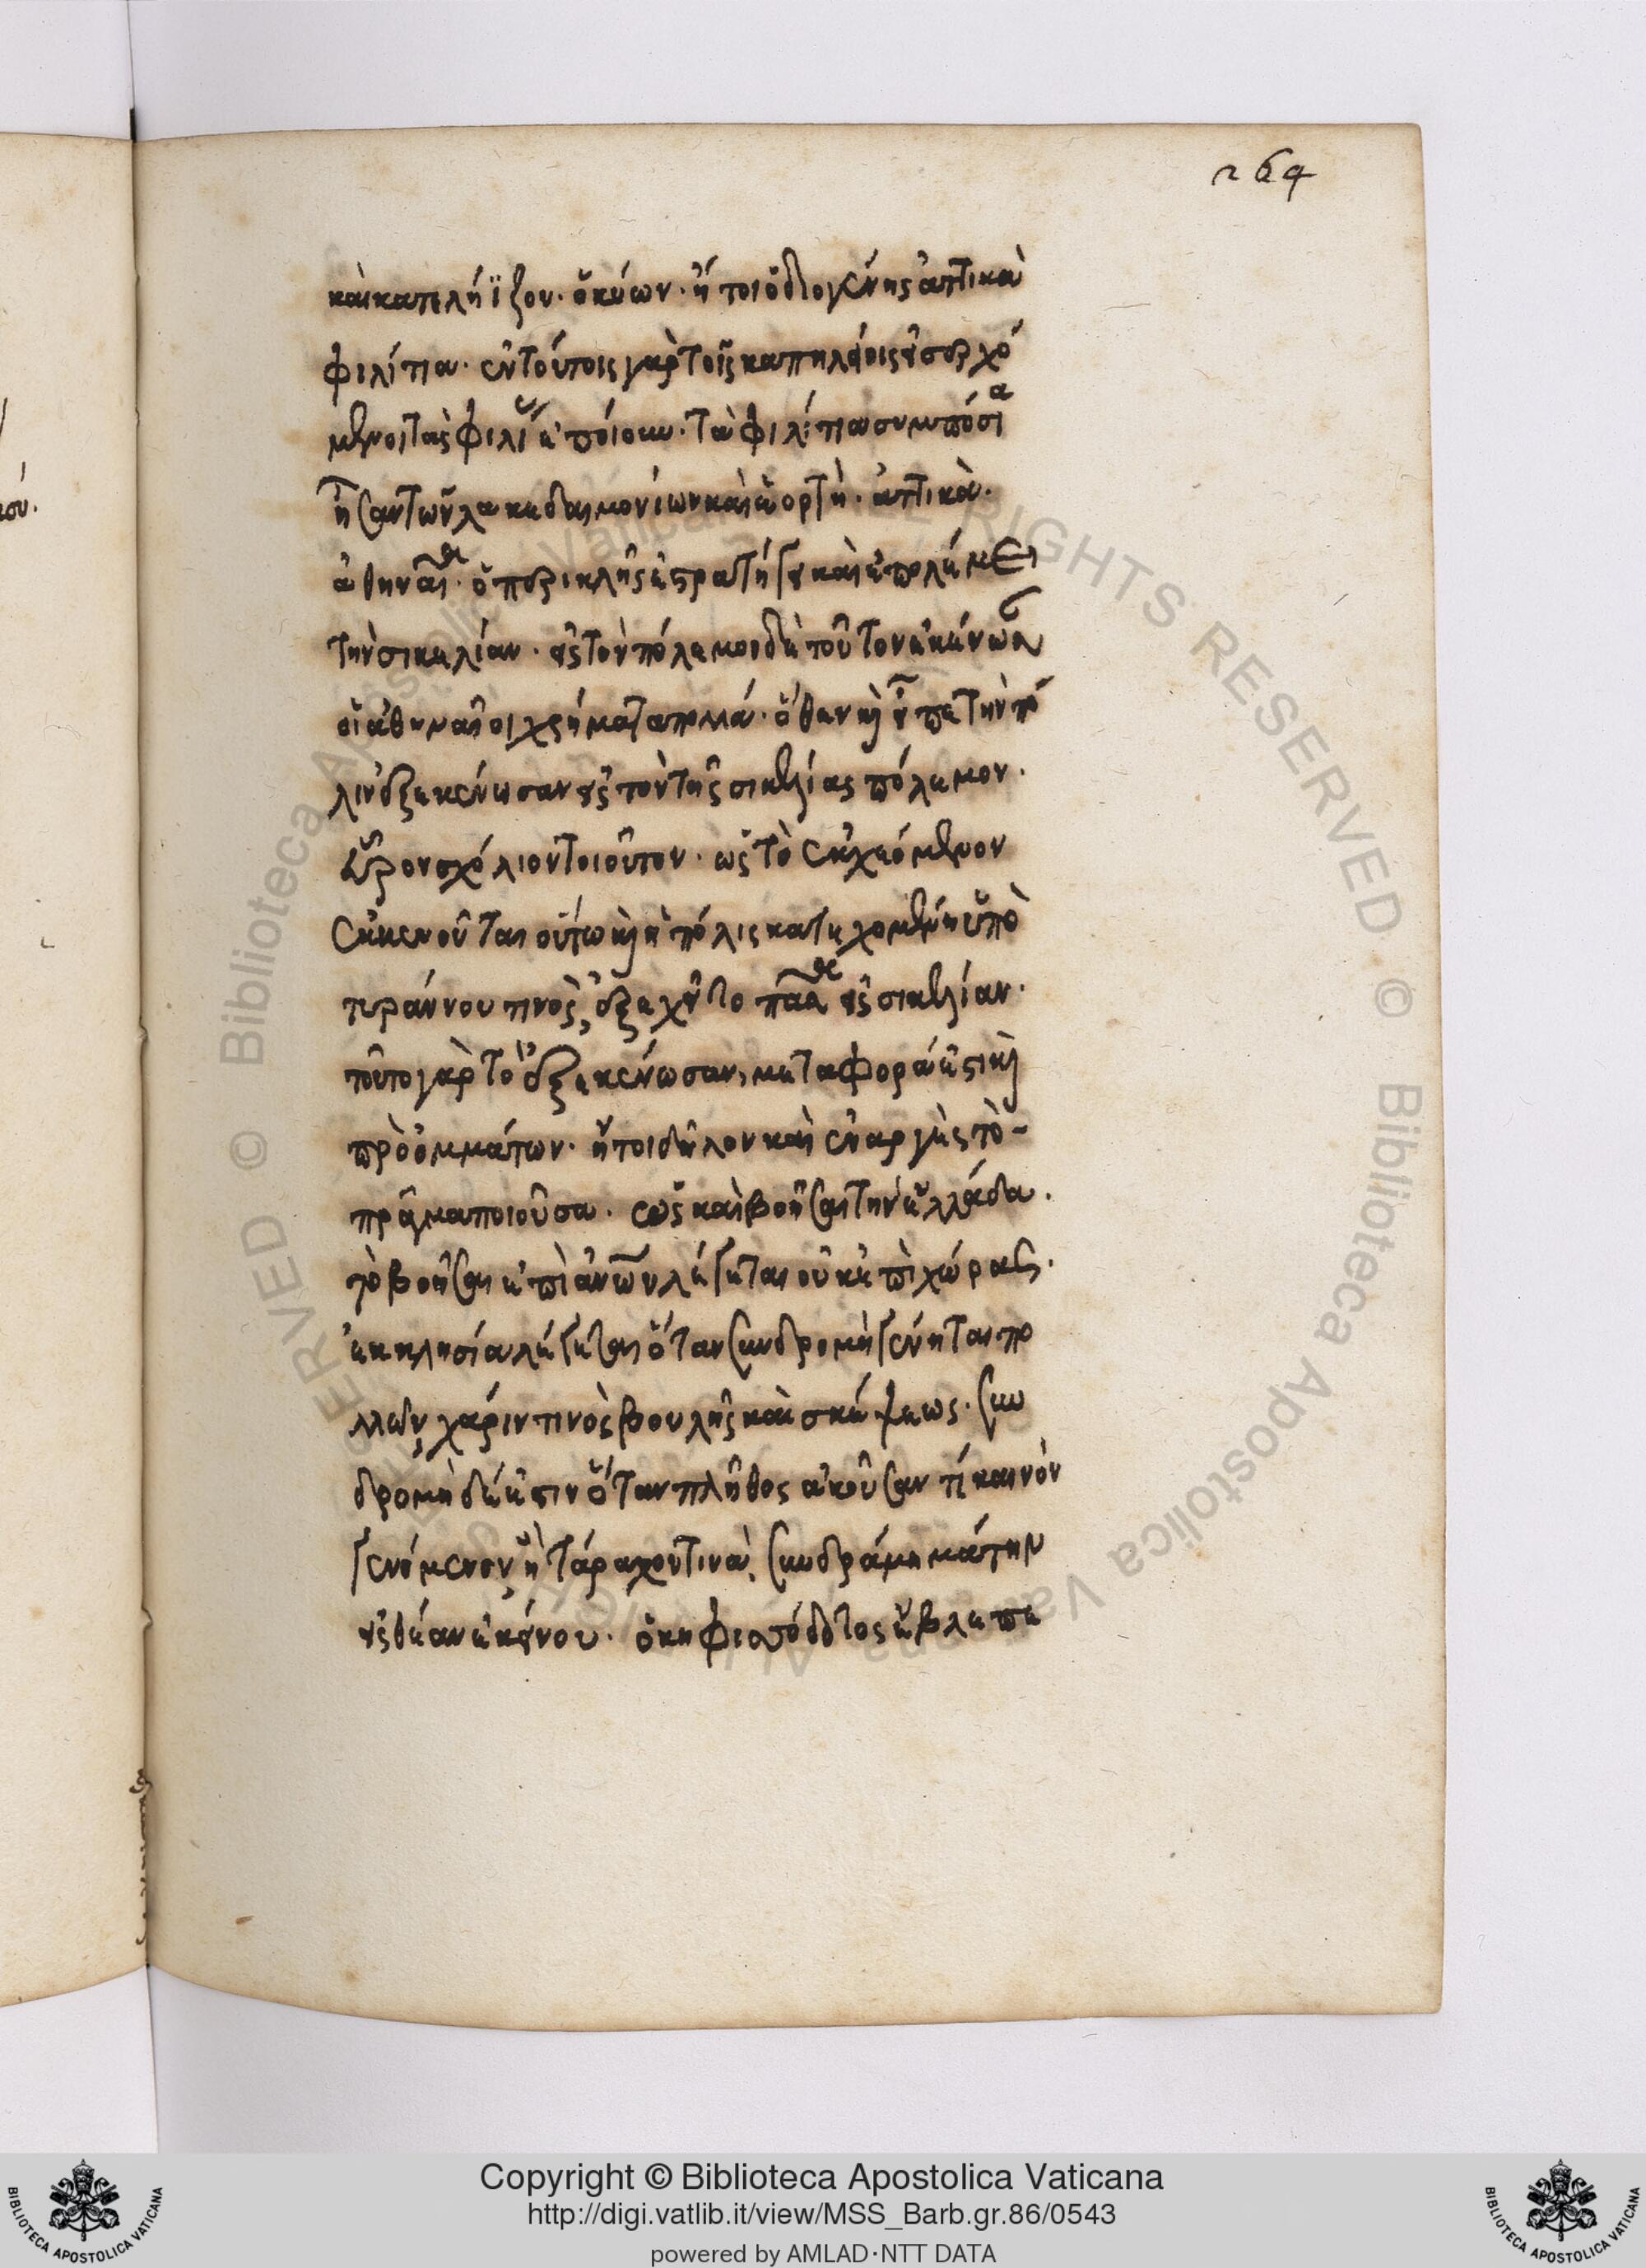 264
καὶ κατελήϊζον· ὁ κύων· ἤτοι ὁ διογένης ἀττικὰ
φιλίτια· ἐν τούτοις γὰρ τοῖς καπηλείοις εἰσερχό
μενοι τὰς φιλί ἐποίουν· τὰ φιλίτια συμπόσια
ἦσαν τῶν λακεδαιμονίων καὶ ἑορτή· ἀττικὰ·
ἀθηναι· ὁ περικλῆς ἐστρατήγει καὶ ἐπολέμει
τὴν σικελίαν· εἰς τὸν πόλεμον δὲ τοῦτον ἐκένωσαν
οἱ ἀθηναῖοι χρήματα πολλά· ὅθεν καὶ εἶπε τὴν πό
λιν ἐξεκένωσαν εἰς τὸν τῆς σικελίας πόλεμον·
εὗρον σχόλιον τοιοῦτον· ὡς τὸ ἐκχεόμενον
ἐκκενοῦται οὕτω καὶ ἡ πόλις κατεχομένη ὑπὸ
τυράννου τινὸς, ἐξεχεῖτο πᾶσα εἰς σικελίαν·
τοῦτο γὰρ τὸ ἐξεκένωσαν, μεταφορά ἐστι καὶ
πρὸ ὀμμάτων· ἤτοι δῆλον καὶ ἐναργὲς τὸ-
πρᾶγμα ποιοῦσα· ὡς καὶ βοῆσαι τὴν ἑλλάδα·
τὸ βοῆσαι ἐπὶ ἀνων λέγεται οὐκ ἐπὶ χώρας·
ἐκκλησία λέγεται ὅταν συνδρομὴ γένηται πο
λλῶν, χάριν τινὸς βουλῆς καὶ σκέψεως· συν
δρομὴ δέ ἐστιν ὅταν πλῆθος ἀκοῦσαν τί καινὸν
γενόμενον, ἢ τάραχόν τινα, συνδράμη μάτην
εἰς θέαν ἐκείνου· ὁ κηφισόδοτος ἔβλεπε
Copyright © Biblioteca Apostolica Vaticana
http://digi.vatlib.it/view/MSS_Barb.gr.86/0543
powered by AMLAD·NTT DATA